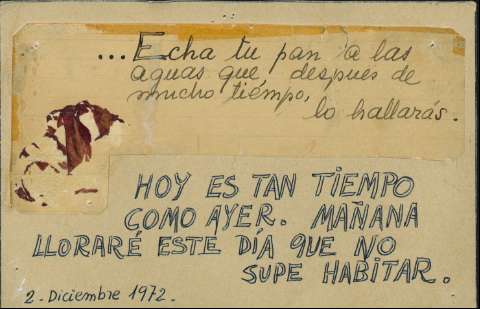 ...Echa tu pan a las
aguas que, despues de
mucho tiempo,
lo hallarás.
HOY ES TAN TIEMPO
COMO AYER. MAÑANA
LLORARÉ ESTE DÍA QUE NO
SUPE HABITAR.
2-Diciembre 1972.